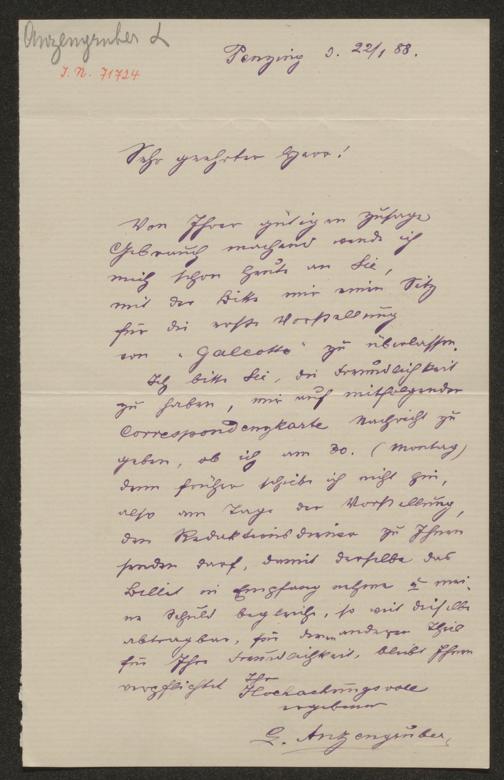 Anzengruber L
I. N. 71724
Penzing d. 22/1 88.
Sehr geehrter Herr!
Von Ihrer gütigen Zusage
Gebrauch machend wende ich
mich schon heute an Sie,
mit der Bitte mir einen Sitz
für die erste Vorstellung
von "Galeotto" zu überlassen.
Ich bitte Sie, die Freundlichkeit
zu haben, mir auf mitfolgender
Correspondenzkarte Nachricht zu
geben, ob ich am 30. (Montag)
denn früher schicke ich nicht hin,
also am Tage der Vorstellung,
den Redaktionsdiener zu Ihnen
senden darf, damit derselbe das
Billet in Empfang nehme u mei-
ne Schuld begleiche, so weit dieselbe
abtragbar, für den anderen Theil
für Ihre Freundlichkeit, bleibt Ihnen
verpflichtet Ihr
Hochachtungsvoll
ergebener
L. Anzengruber,